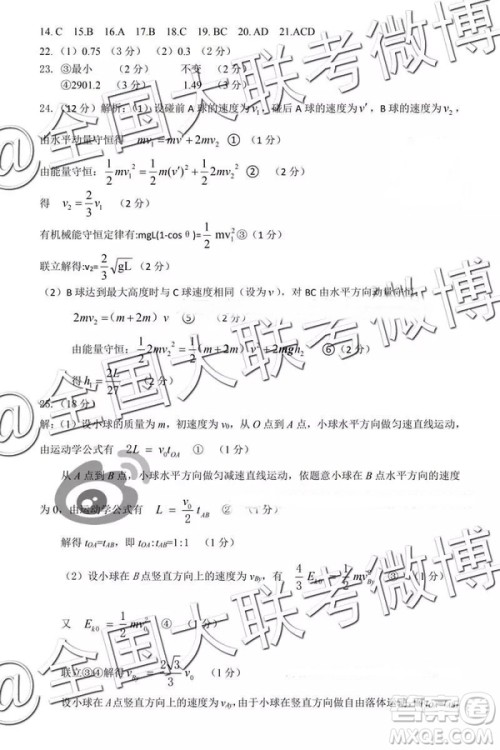 14. C 15.B 16.A 17.B 18.C 19. BC 20. AD 21.ACD
22.（1）0.75 （3 分） （2）0.3 （3 分）
23. ③最小 （2 分） 不变 （2 分）
④2901.2 （3 分） 1.49 （3 分）
24.（12 分）解析：（1）设碰前 A 球的速度为v₁，碰后 A 球的速度为v′，B 球的速度为v₂，
由水平动量守恒得 mv₁ = mv′ + 2mv₂ ① （1 分）
由能量守恒：1/2 mv₁² = 1/2 m(v′)² + 1/2 2mv₂² ② （2 分）
得 v₂ = 2/3 v₁ （2 分）
有机械能守恒定律有:mgL(1-cosθ)=1/2 mv₁²③（1 分）
联立解得:v₂=2/3 √gL （2 分）
（2）B 球达到最大高度时与 C 球速度相同（设为 v），对 BC 由水平方向动量守恒，
2mv₂ =（m + 2m）v ⑤ （2 分）
由能量守恒：1/2 2mv₂² = 1/2（m + 2m）v² + 2mgh ⑥（1 分）
得 h₁ = 2L/27 （2 分）
25.（18 分）
解：（1）设小球的质量为 m，初速度为 v₀，从 O 点到 A 点，小球水平方向做匀速直线运动，
由运动学公式有 2L = v₀t_OA ① （1 分）
从 A 点到 B 点，小球水平方向做匀减速直线运动，依题意小球在 B 点水平方向的速度
为 0，由运动学公式有 L = v₀/2 t_AB ② （1 分）
解得 t_OA=t_AB，即 t_OA:t_AB=1:1 （1 分）
（2）设小球在 B 点竖直方向上的速度为 v_By，有 4/3 E_k0 = 1/2 mv_By² ③（1 分）
又 E_k0 = 1/2 mv₀² ④（1 分）
联立③④解得 v_By = 2√3/3 v₀ （1 分）
设小球在 A 点竖直方向上的速度为 v_Ay，由于小球在竖直方向做自由落体运动，
@全国大联考微博
@全国大联考微博
@全国大联考微博
答案圈
MXQE.COM